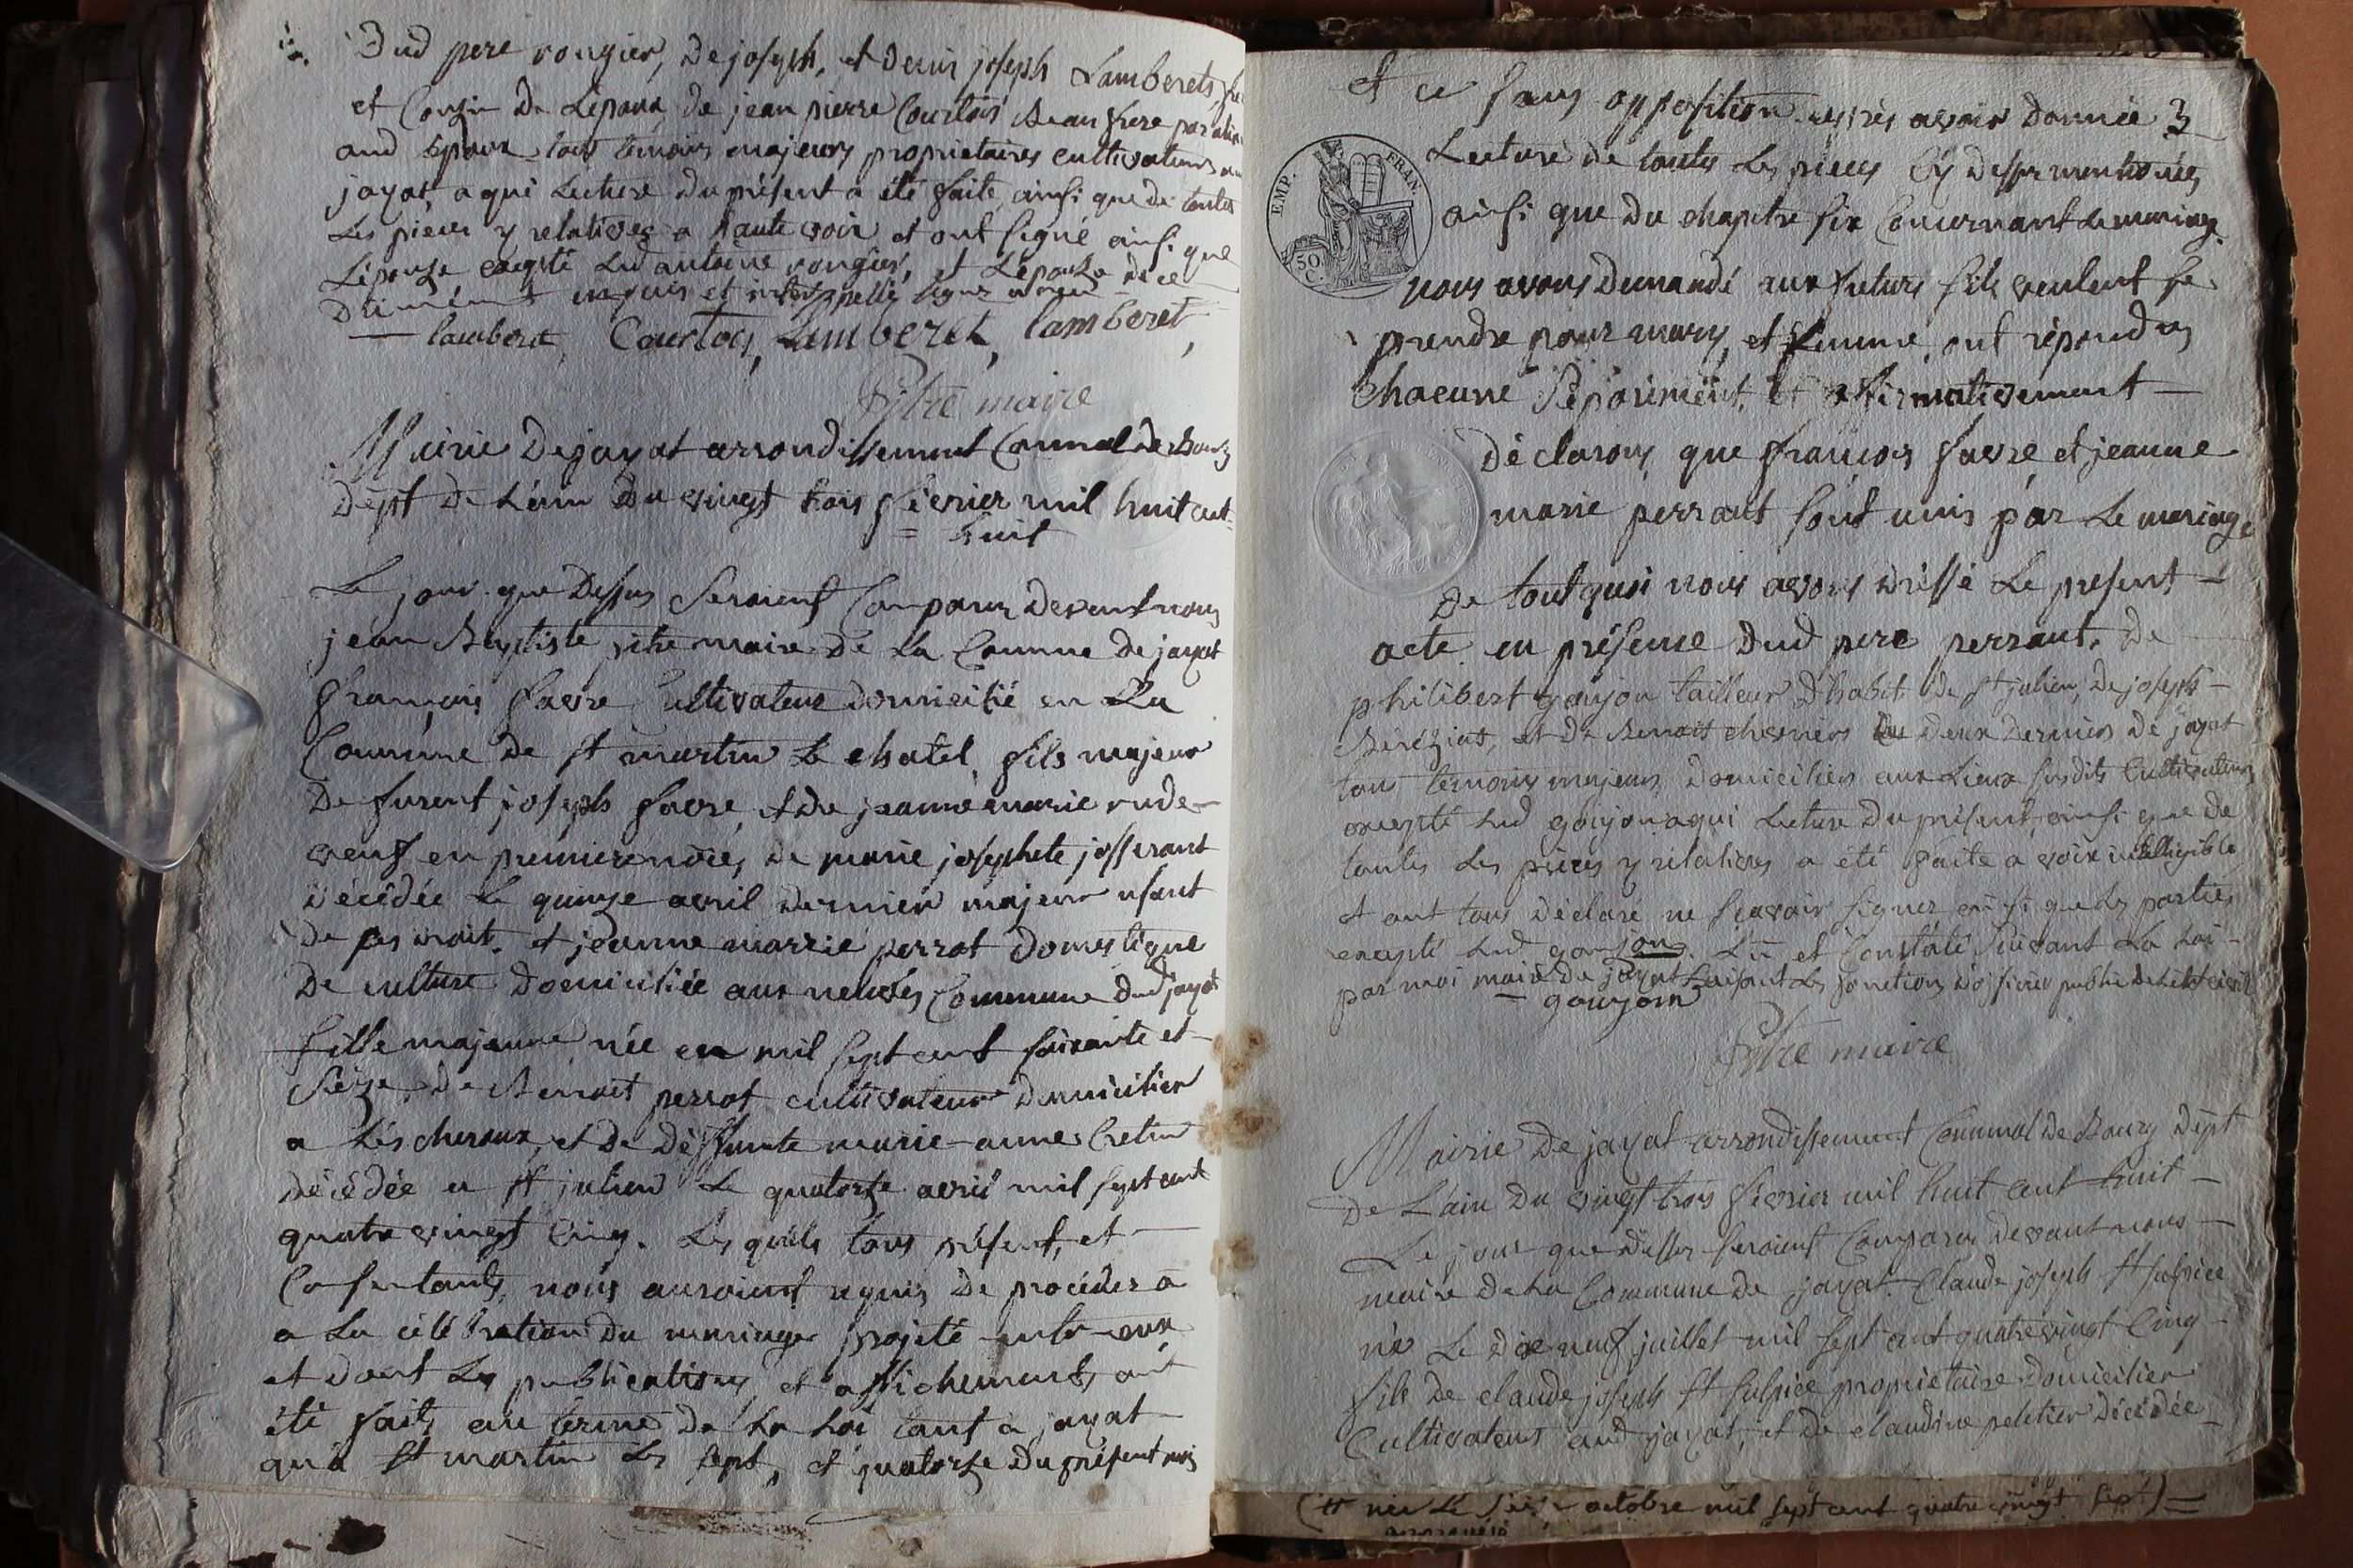 Dud pere rougier, De joseph, et Denis joseph Lamberets,
et Cousin De Lepoux, de jean pierre Courtois Beau frere par
aud Epoux tous témoins majeurs proprietaires cultivateurs
jayat, a qui Lecture Du présent a été faite, ainsi que de toutes
Les pieces y relatives a haute voix et ont signé ainsi que
L'épouse excepté Lud antoine rougier, et Lepouse de ce
Duement enquis et interppellés
lamberet, Courtois, Lamberet, lamberet,
Pitre maire
Mairie Dejayat arrondissement Comunal de Bourg
Dept De L'ain Du vingt trois février mil huit cent
= huit
Le jour que Dessus Seroient Comparus Devant nous
jean Baptiste pitre maire De La Comune De jayat
françois favre Cultivateur Domicilié en La
Commune De st martin Le chatel, fils majeur
De furent joseph favre, et De jeanne marie rude
veuf en premiere noces, De marie josephete josserant
Décédée Le quinze avril Dernier majeur usant
De ses droit. et jeanne marrie perrot Domestique
De culture Domiciliée aux nelvés Commune Dud jayat
fille majeure née en mil sept cent soixante et
Sèze, De Benoit perrot cultivateur Domicilier
a Léscheroux, et De Déffunte marie-anne Cretin
Décédée a st julien Le quatorze avril mil sept cent
quatre vingt Cinq. Les quels tous présent, et
Consentants, nous auroient requis De procéder a
a La célébration Du mariage projeté entre eux
et Dont Les publications et affichements ont
été faits au terme De La Loi tant a jayat
qu'a st martin Les sept, et quatorze Du présent mois
Et ce sans opposition après avoir Donnée
3
EMP. FRAN.
50 C.
Lecture De toutes Les pieces Cy Dessus mentionées
ainsi que Du chapitre six Concernant Le mariage
nous avons Demandé aux futurs s'ils veulent se
prendre pour mary, et femme, ont répondus
Chacune Séparément, et affirmativement
Déclarons que françois favre et jeanne
marie perraut sont unis par Le mariage
De tout quoi nous avons Dressé Le present
acte en présence Dud pere perraut, De
philibert goujon tailleur D'habit De st julien, De joseph
Béréziat, et De Benoit chevriers Les Deux Derniers De jayat
tous temoins majeurs, Domiciliers aux Lieux susdits Cultivateurs
excepté Lud goujon, a qui Lecture Du présent, ainsi que De
toutes Les pièces y relatives a été faite a voix intelligible
et ont tous Déclaré ne scavoir signer ainsi que Les parties
excepté Lud goujon. Lu et Constaté Suivant La Loi
par moi maire De jayat faisant Les fonctions D'officier public De L'état civil
goujon
Pitre maire
Mairie De jayat arrondissement Communal De Bourg Dépt
De L'ain Du vingt trois février mil huit cent huit
Le jour que Dessus Seroient Comparus Devant nous
maire De La Commune De jayat. Claude joseph st sulpice
né Le Dix neuf juillet mil sept cent quatre vingt Cinq
fils De claude joseph st sulpice propriétaire Domicilier
Cultivateur aud jayat, et De claudine peletier Décédée
née Le octobre mil sept cent quatre vingt sept) =